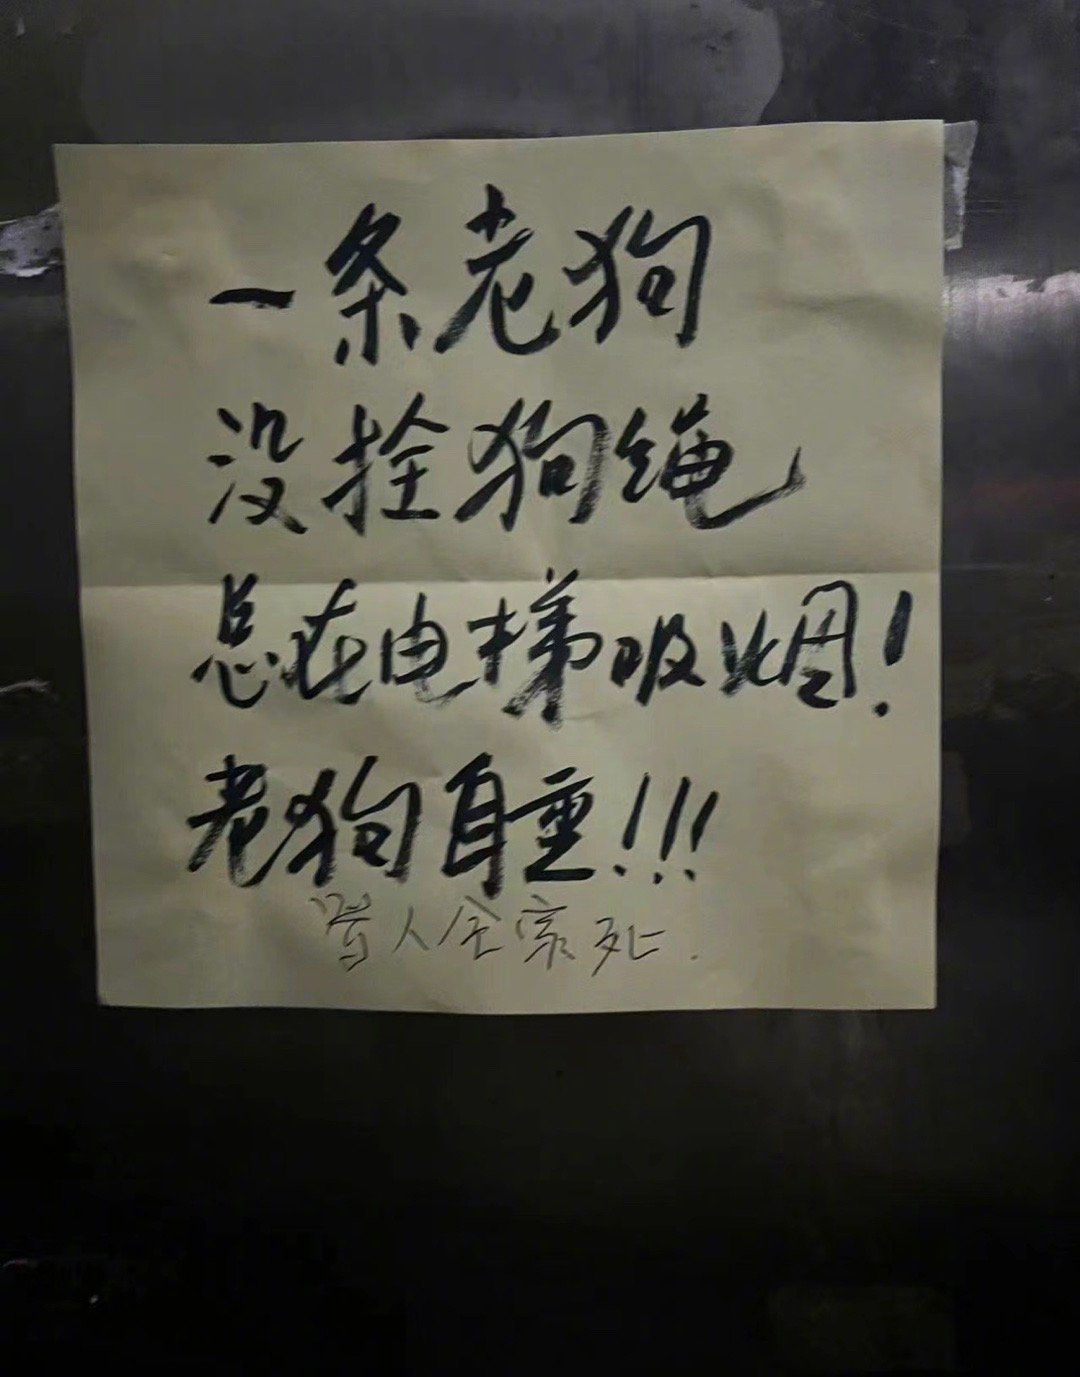 一条老狗
没拴狗绳
总在电梯吸烟！
老狗自重！！！
骂人全家死.